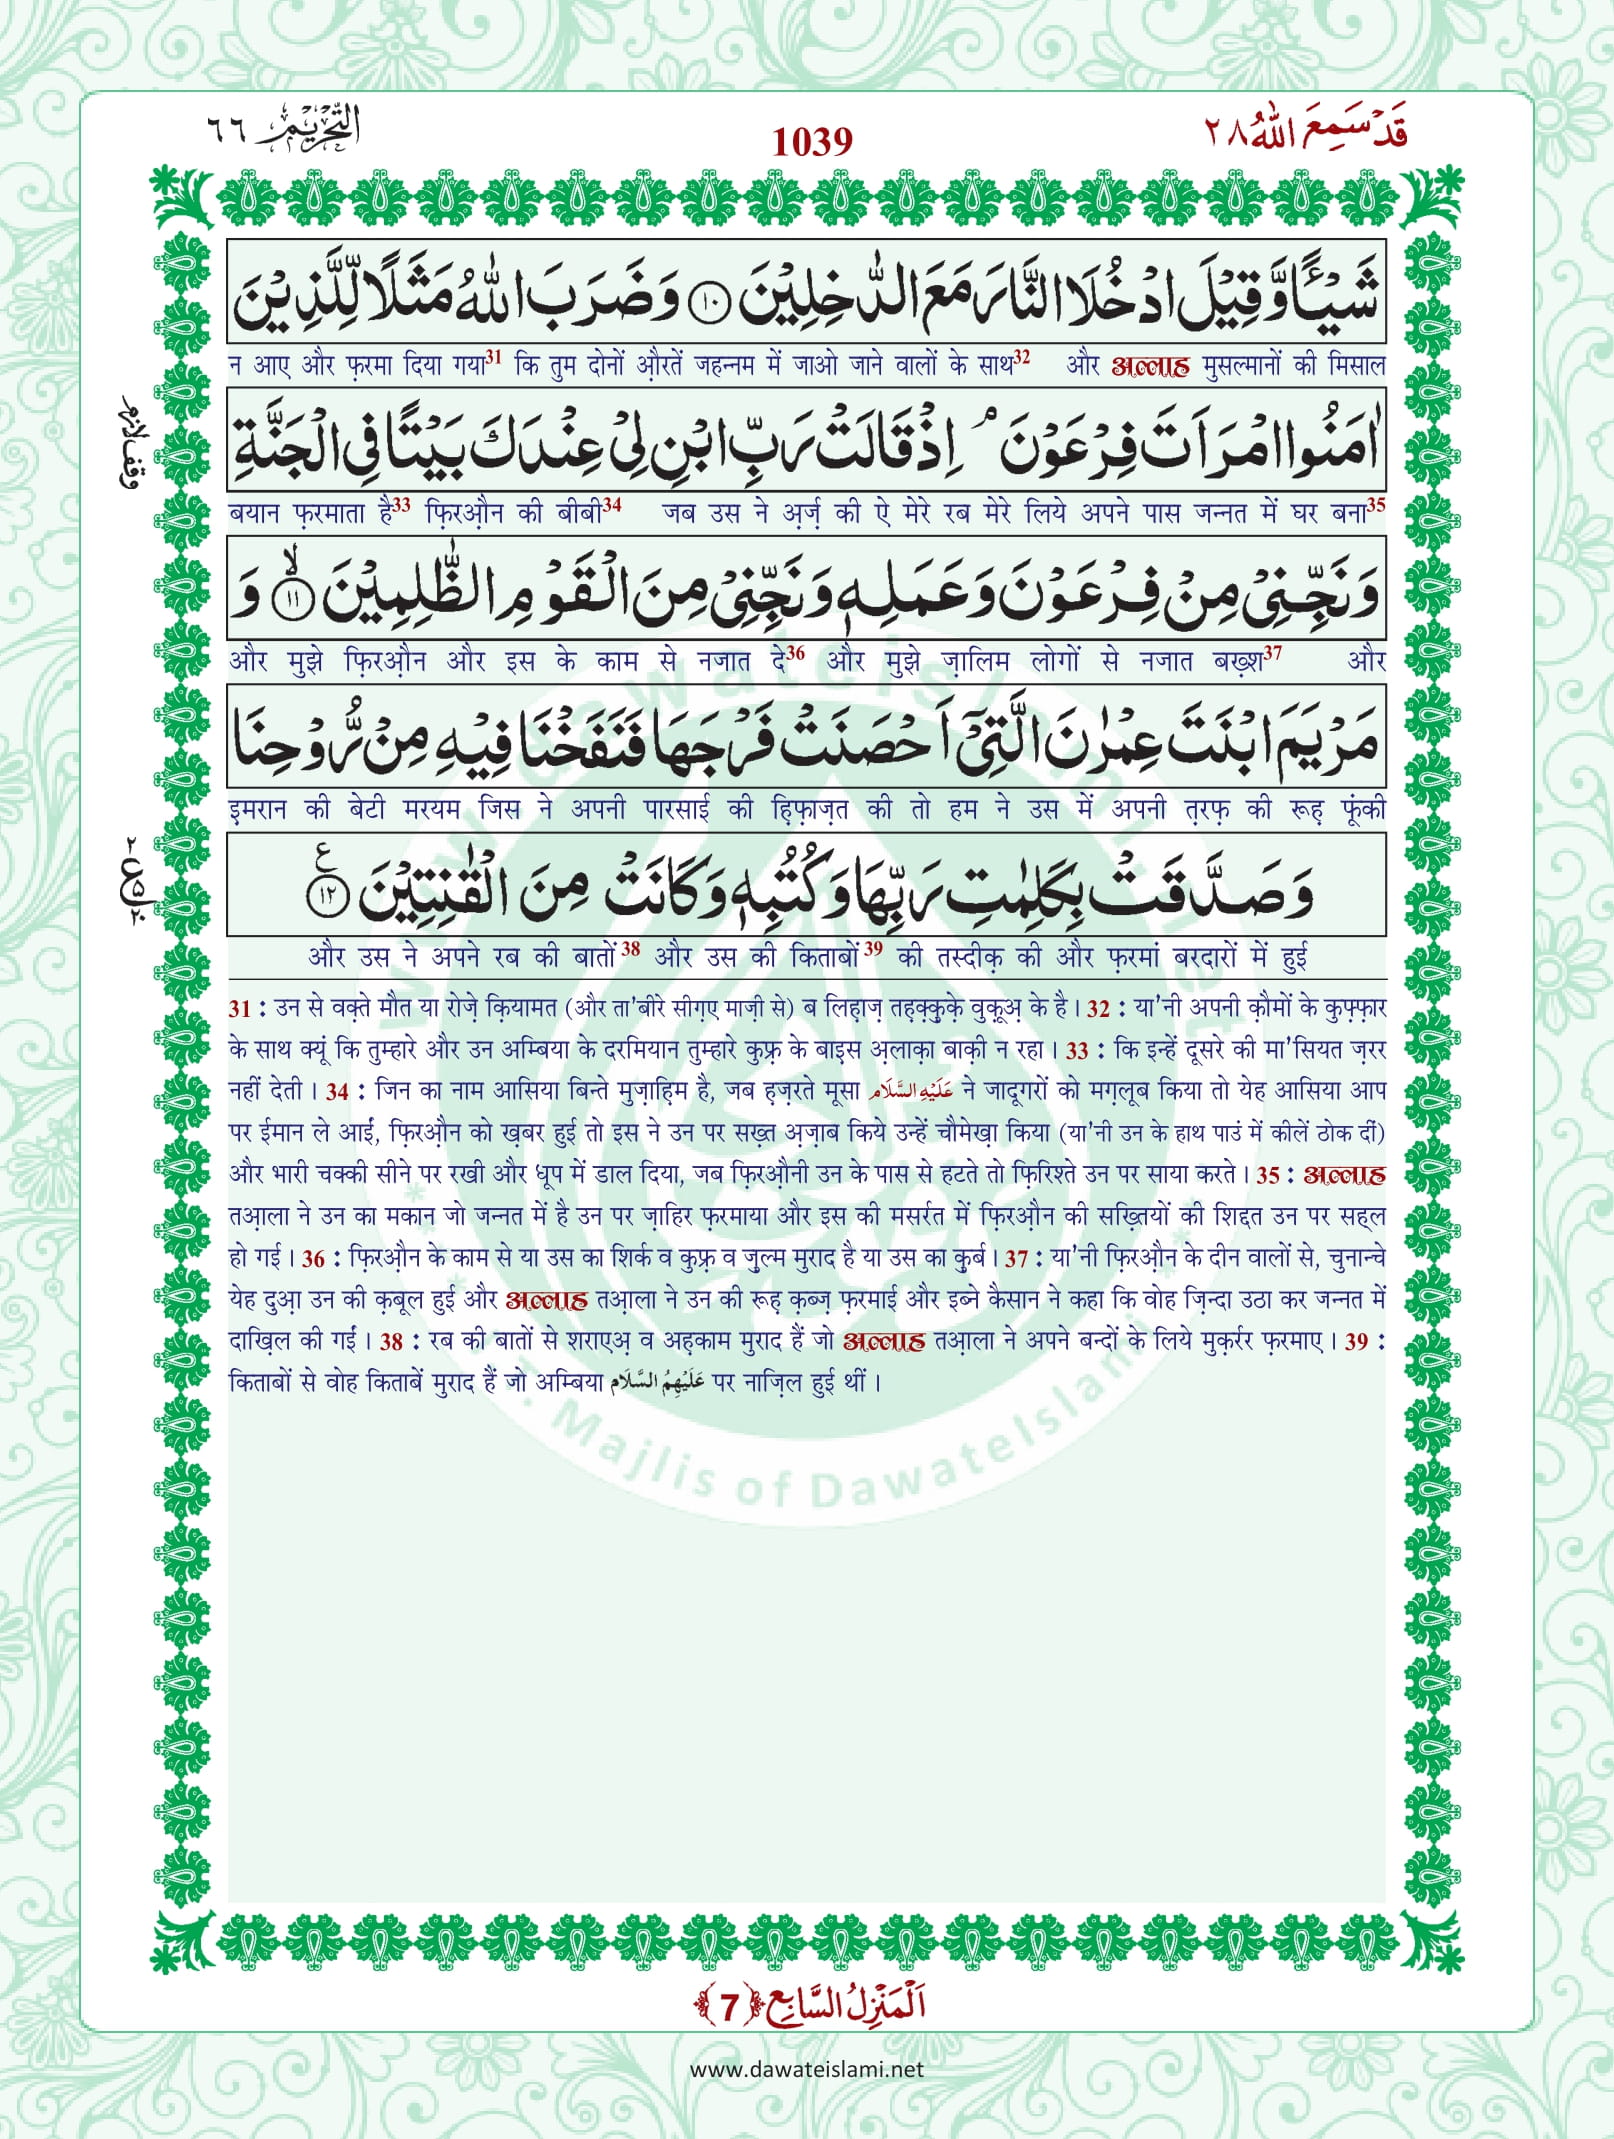 التحريم ٦٦
1039
قَدْ سَمِعَ اللّٰهُ ٢٨
شَيْـًٔا وَّ قِيْلَ ادْخُلَا النَّارَ مَعَ الدّٰخِلِيْنَ ۝۱۰ وَ ضَرَبَ اللّٰهُ مَثَلًا لِّلَّذِيْنَ
न आए और फ़रमा दिया गया31 कि तुम दोनों औ़रतें जहन्नम में जाओ जाने वालों के साथ32 और अल्लाह मुसल्मानों की मिसाल
وقف لازم
اٰمَنُوا امْرَاَتَ فِرْعَوْنَ ۘ اِذْ قَالَتْ رَبِّ ابْنِ لِيْ عِنْدَكَ بَيْتًا فِي الْجَنَّةِ
बयान फ़रमाता है33 फ़िरऔ़न की बीबी34 जब उस ने अ़र्ज़ की ऐ मेरे रब मेरे लिये अपने पास जन्नत में घर बना35
وَ نَجِّنِيْ مِنْ فِرْعَوْنَ وَ عَمَلِهٖ وَ نَجِّنِيْ مِنَ الْقَوْمِ الظّٰلِمِيْنَ ۝۱۱ۙ وَ
और मुझे फ़िरऔ़न और इस के काम से नजात दे36 और मुझे ज़ालिम लोगों से नजात बख़्श37 और
مَرْيَمَ ابْنَتَ عِمْرٰنَ الَّتِيْۤ اَحْصَنَتْ فَرْجَهَا فَنَفَخْنَا فِيْهِ مِنْ رُّوْحِنَا
इ़मरान की बेटी मरयम जिस ने अपनी पारसाई की ह़िफ़ाज़त की तो हम ने उस में अपनी त़रफ़ की रूह़ फूंकी
وَ صَدَّقَتْ بِكَلِمٰتِ رَبِّهَا وَ كُتُبِهٖ وَ كَانَتْ مِنَ الْقٰنِتِيْنَ ۝۱۲ ع
और उस ने अपने रब की बातों38 और उस की किताबों39 की तस्दीक़ की और फ़रमां बरदारों में हुई
31 : उन से वक़्ते मौत या रोज़े क़ियामत (और ता'बीरे सीग़ए माज़ी से) ब लिह़ाज़ तह़क़्क़ुक़े वुक़ूअ़ के है। 32 : या'नी अपनी क़ौमों के कुफ़्फ़ार
के साथ क्यूं कि तुम्हारे और उन अम्बिया के दरमियान तुम्हारे कुफ़्र के बाइस अ़लाक़ा बाक़ी न रहा। 33 : कि इन्हें दूसरे की मा'सियत ज़रर
नहीं देती। 34 : जिन का नाम आसिया बिन्ते मुज़ाह़िम है, जब ह़ज़रते मूसा عَلَيْهِ السَّلَام ने जादूगरों को मग़्लूब किया तो येह आसिया आप
पर ईमान ले आईं, फ़िरऔ़न को ख़बर हुई तो इस ने उन पर सख़्त अ़ज़ाब किये उन्हें चौमेख़ा किया (या'नी उन के हाथ पाउं में कीलें ठोक दीं)
और भारी चक्की सीने पर रखी और धूप में डाल दिया, जब फ़िरऔ़नी उन के पास से हटते तो फ़िरिश्ते उन पर साया करते। 35 : अल्लाह
तआ़ला ने उन का मकान जो जन्नत में है उन पर ज़ाहिर फ़रमाया और इस की मसर्रत में फ़िरऔ़न की सख़्तियों की शिद्दत उन पर सह्ल
हो गई। 36 : फ़िरऔ़न के काम से या उस का शिर्क व कुफ़्र व ज़ुल्म मुराद है या उस का क़ुर्ब। 37 : या'नी फ़िरऔ़न के दीन वालों से, चुनान्चे
येह दुआ़ उन की क़बूल हुई और अल्लाह तआ़ला ने उन की रूह़ क़ब्ज़ फ़रमाई और इब्ने कैसान ने कहा कि वोह ज़िन्दा उठा कर जन्नत में
दाख़िल की गईं। 38 : रब की बातों से शराएअ़ व अह़काम मुराद हैं जो अल्लाह तआ़ला ने अपने बन्दों के लिये मुक़र्रर फ़रमाए। 39 :
किताबों से वोह किताबें मुराद हैं जो अम्बिया عَلَيْهِمُ السَّلَام पर नाज़िल हुई थीं।
Majlis of DawateIslami
اَلْمَنْزِلُ السَّابِع ﴿7﴾
www.dawateislami.net